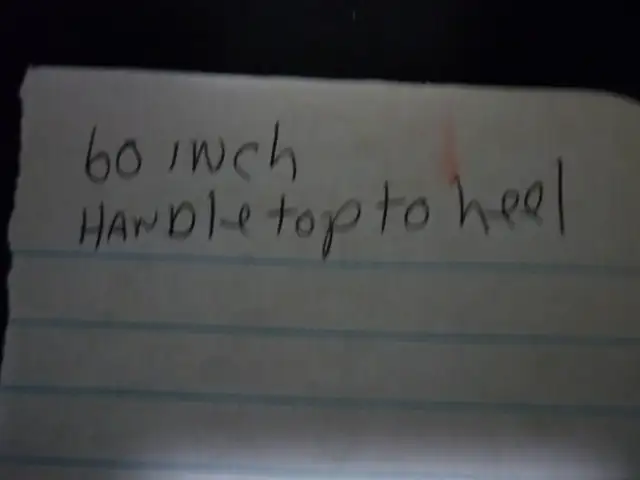 60 inch
HANDle top to heel